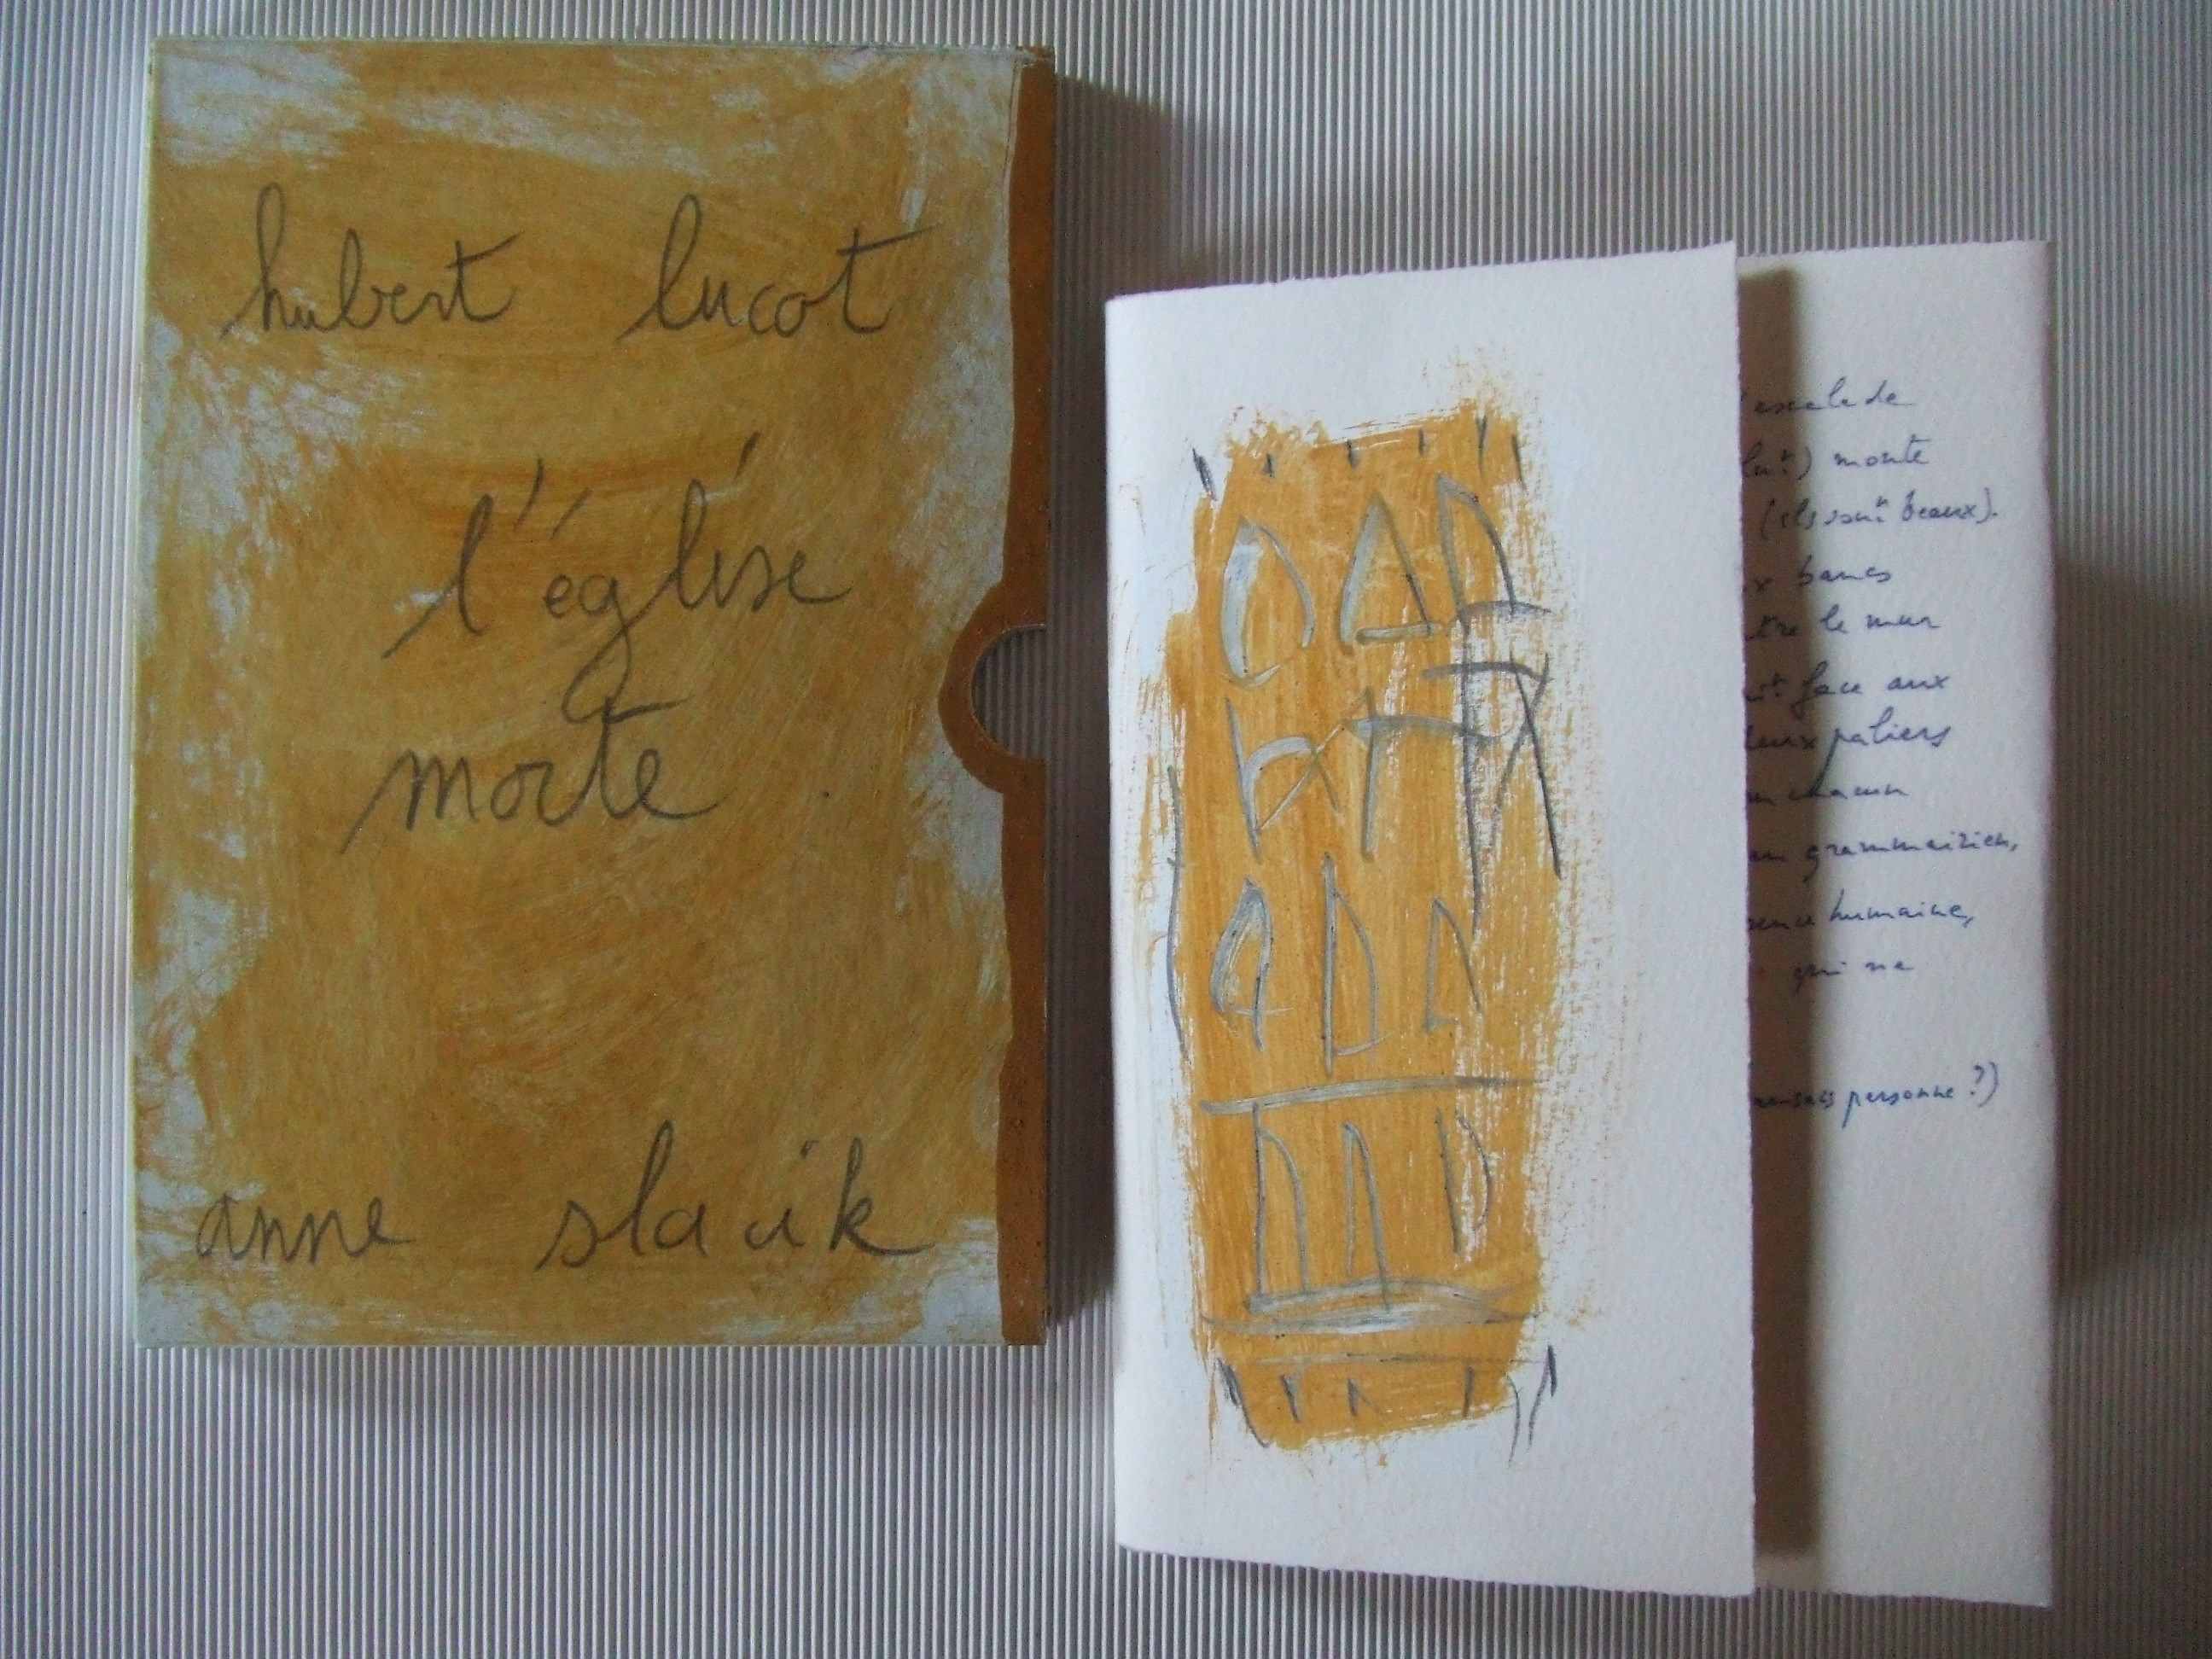 hubert lucot
l'église
morte
anne slacik
escalade
monte
(ils sont beaux).
bancs
le mur
face aux
paliers
chacun
grammairien,
humaine,
qui ne
personne ?)